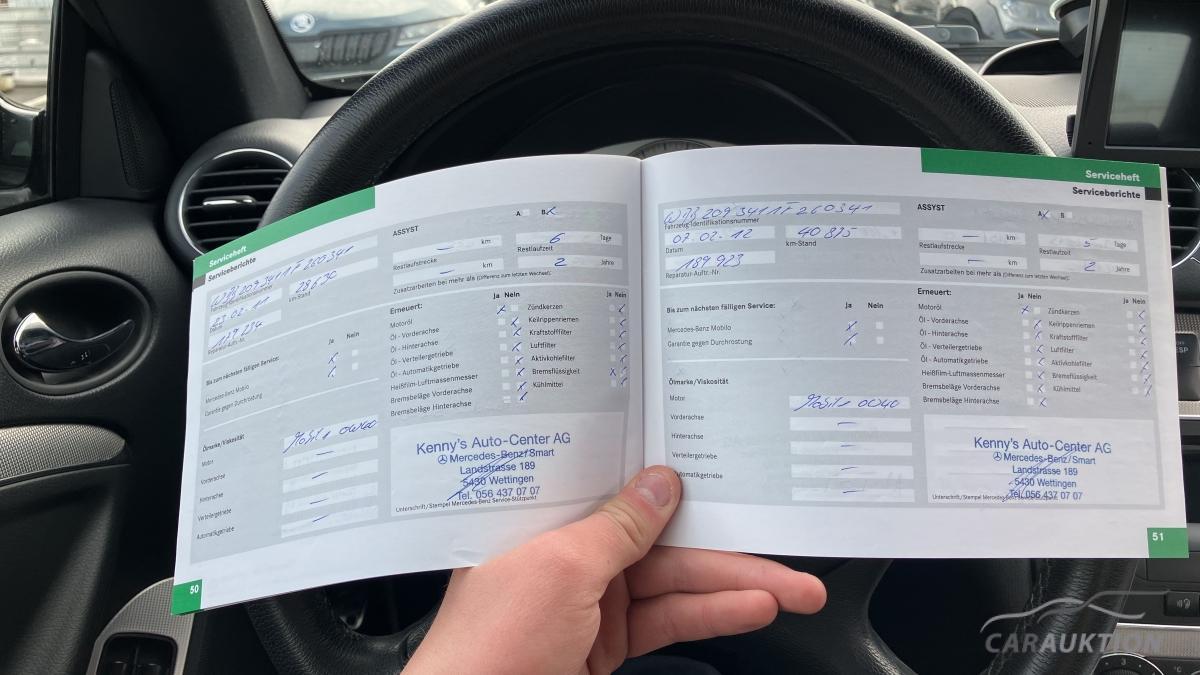 Serviceheft
Serviceberichte
WDB 209 341 1F 260341
Fahrzeug-Identifikationsnummer
23.02.11 28630
Datum km-Stand
Reparatur-Auftr.-Nr.
ASSYST A B
km 6 Tage
Restlaufstrecke Restlaufzeit
km 2 Jahre
Zusatzarbeiten bei mehr als (Differenz zum letzten Wechsel):
Bis zum nächsten fälligen Service: Ja Nein
Mercedes-Benz Mobilo
Garantie gegen Durchrostung
Erneuert: Ja Nein Ja Nein
Motoröl Zündkerzen
Öl - Vorderachse Keilrippenriemen
Öl - Hinterachse Kraftstofffilter
Öl - Verteilergetriebe Luftfilter
Öl - Automatikgetriebe Aktivkohlefilter
Heißfilm-Luftmassenmesser Bremsflüssigkeit
Bremsbeläge Vorderachse Kühlmittel
Bremsbeläge Hinterachse
Ölmarke/Viskosität
Motor Mobil 1 0W40
Vorderachse
Hinterachse
Verteilergetriebe
Automatikgetriebe
Kenny's Auto-Center AG
Mercedes-Benz/Smart
Landstrasse 189
5430 Wettingen
Tel. 056 437 07 07
Unterschrift/Stempel Mercedes-Benz Service-Stützpunkt
50
Serviceheft
Serviceberichte
WDB 209 341 1F 260341
Fahrzeug-Identifikationsnummer
07.02.12 40 875
Datum km-Stand
189 923
Reparatur-Auftr.-Nr.
ASSYST A B
km 5 Tage
Restlaufstrecke Restlaufzeit
km 2 Jahre
Zusatzarbeiten bei mehr als (Differenz zum letzten Wechsel):
Bis zum nächsten fälligen Service: Ja Nein
Mercedes-Benz Mobilo
Garantie gegen Durchrostung
Erneuert: Ja Nein Ja Nein
Motoröl Zündkerzen
Öl - Vorderachse Keilrippenriemen
Öl - Hinterachse Kraftstofffilter
Öl - Verteilergetriebe Luftfilter
Öl - Automatikgetriebe Aktivkohlefilter
Heißfilm-Luftmassenmesser Bremsflüssigkeit
Bremsbeläge Vorderachse Kühlmittel
Bremsbeläge Hinterachse
Ölmarke/Viskosität
Motor Mobil 1 0W40
Vorderachse
Hinterachse
Verteilergetriebe
Automatikgetriebe
Kenny's Auto-Center AG
Mercedes-Benz/Smart
Landstrasse 189
5430 Wettingen
Tel. 056 437 07 07
Unterschrift/Stempel Mercedes-Benz Service-Stützpunkt
51
ESP
CARAUKTION